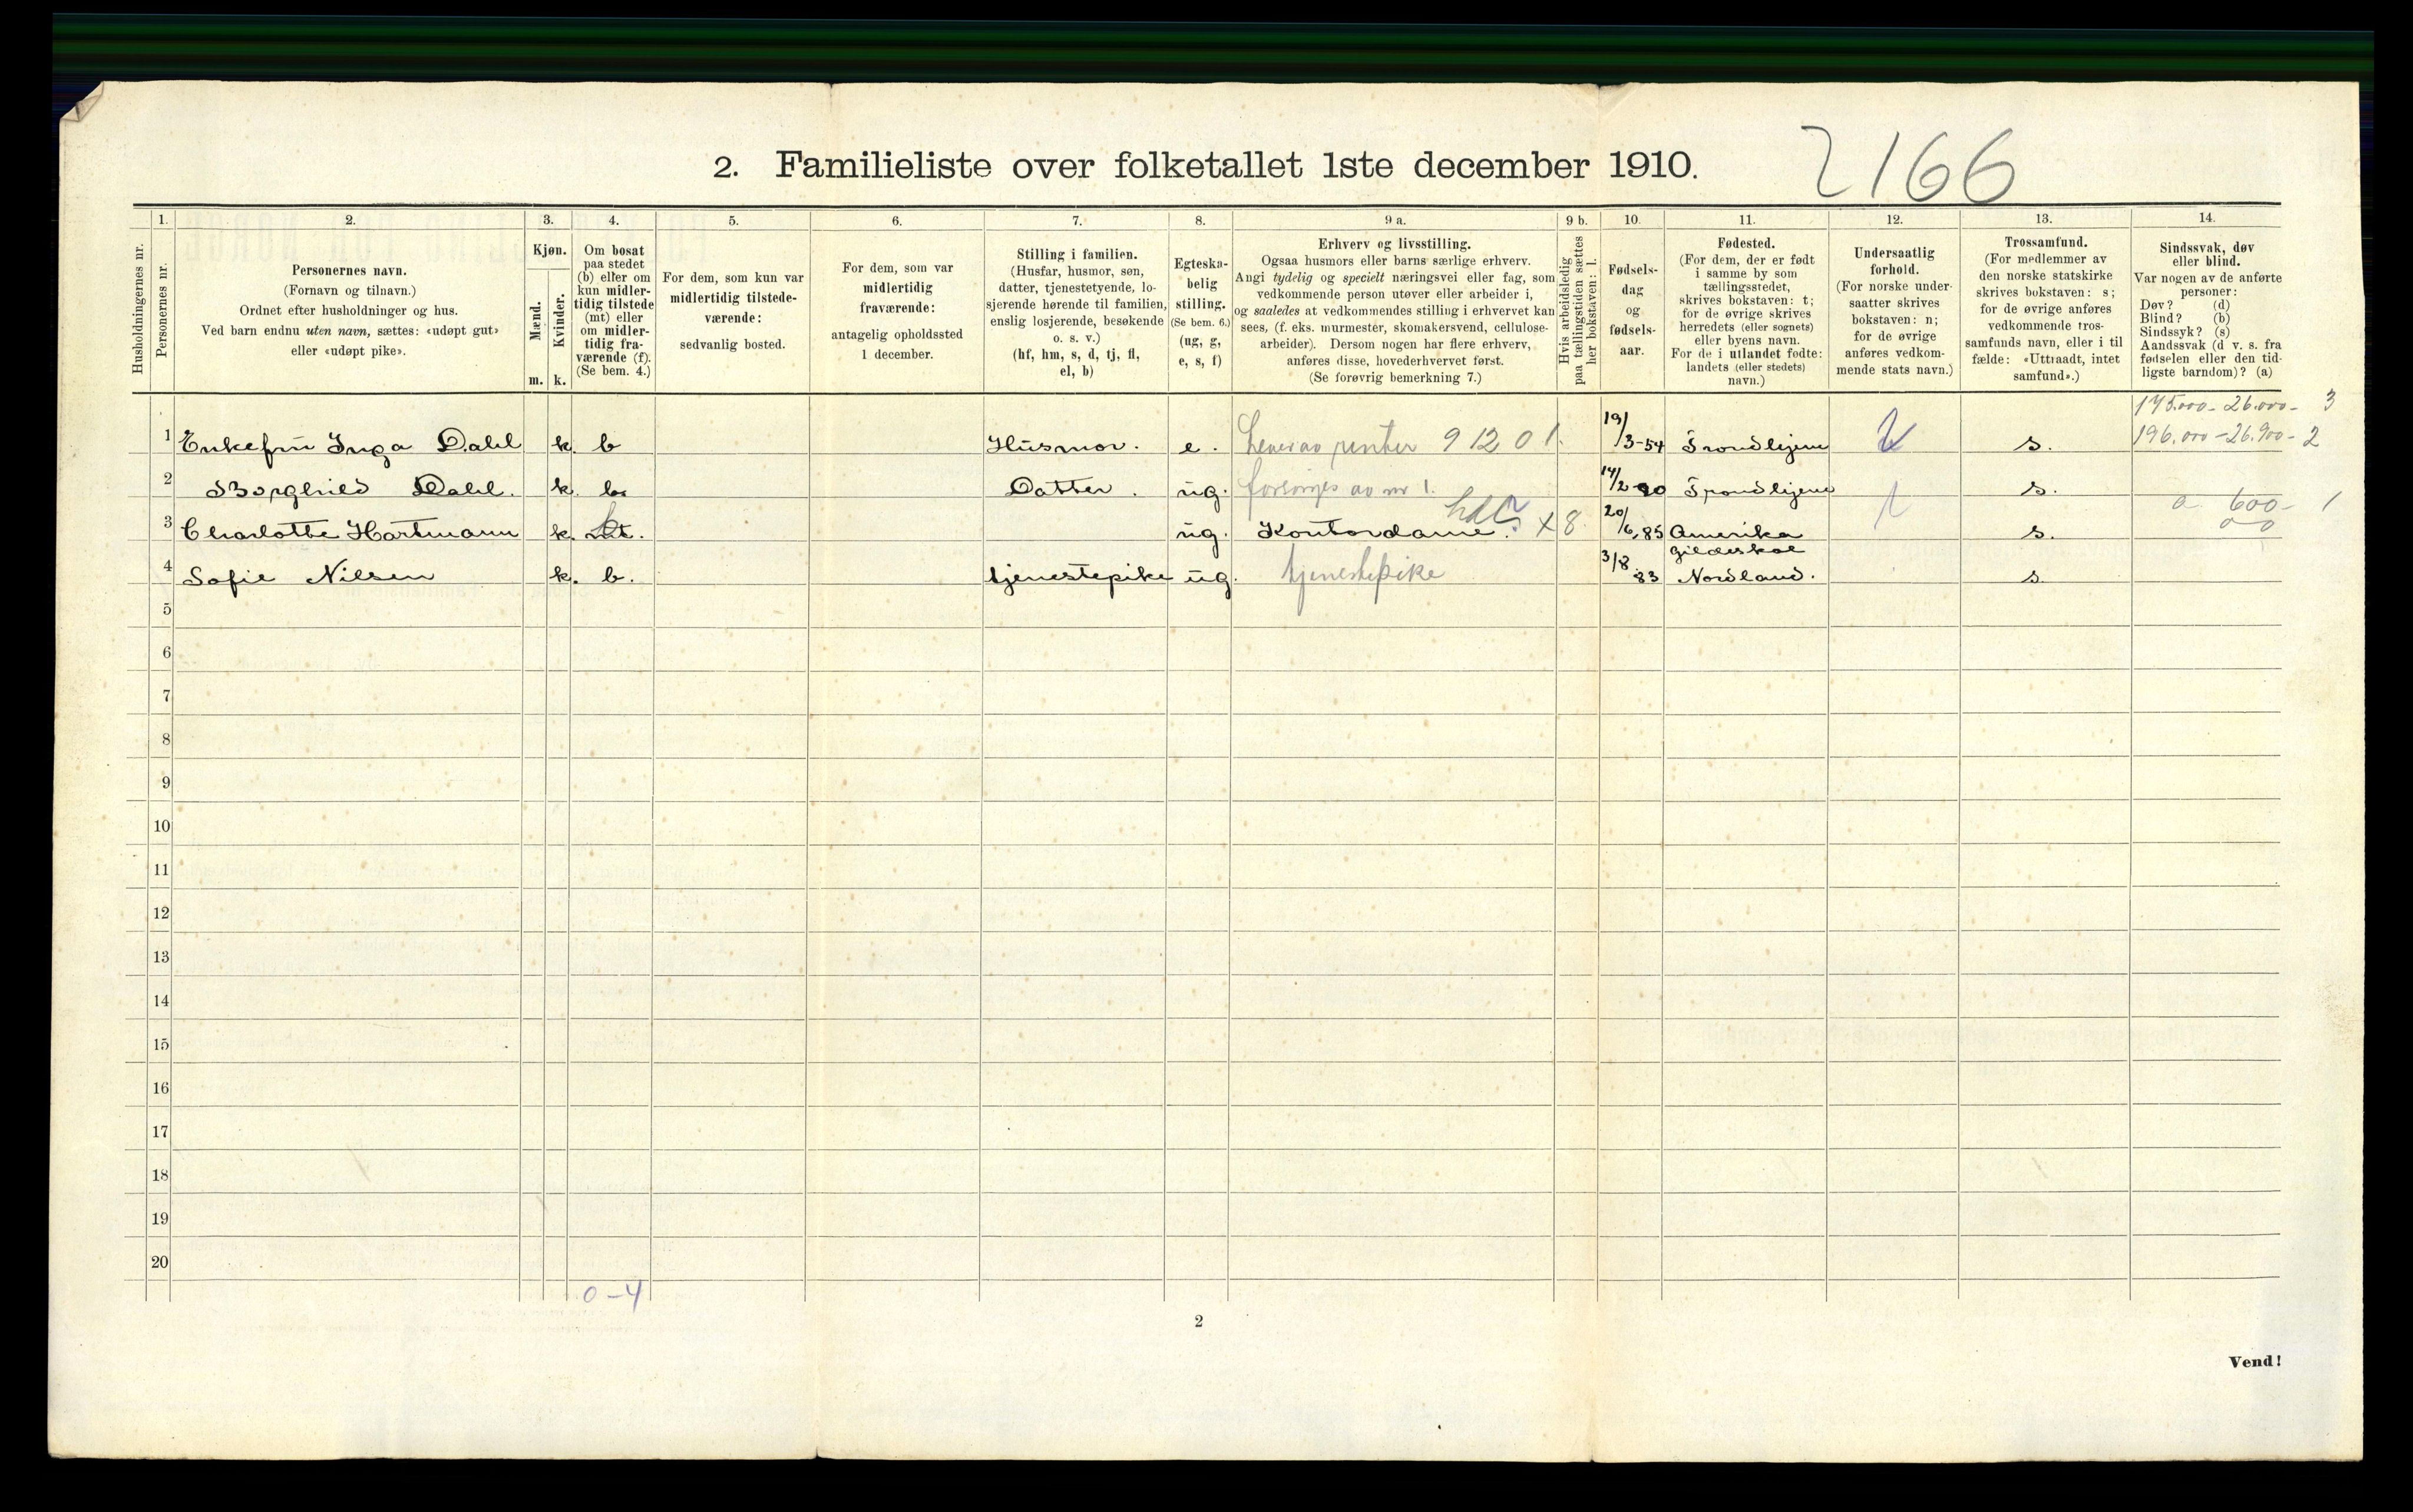 2. Familieliste over folketallet 1ste december 1910.
2166
Husholdningernes nr.
1.
Personernes nr.
2.
Personernes navn.
(Fornavn og tilnavn.)
Ordnet efter husholdninger og hus.
Ved barn endnu uten navn, sættes: «udøpt gut»
eller «udøpt pike».
3.
Kjøn.
Mænd.
Kvinder.
m. k.
4.
Om bosat
paa stedet
(b) eller om
kun midler-
tidig tilstede
(mt) eller
om midler-
tidig fra-
værende (f).
(Se bem. 4.)
5.
For dem, som kun var
midlertidig tilstede-
værende:
sedvanlig bosted.
6.
For dem, som var
midlertidig
fraværende:
antagelig opholdssted
1 december.
7.
Stilling i familien.
(Husfar, husmor, søn,
datter, tjenestetyende, lo-
sjerende hørende til familien,
enslig losjerende, besøkende
o. s. v.)
(hf, hm, s, d, tj, fl,
el, b)
8.
Egteska-
belig
stilling.
(Se bem. 6.)
(ug, g,
e, s, f)
9 a.
Erhverv og livsstilling.
Ogsaa husmors eller barns særlige erhverv.
Angi tydelig og specielt næringsvei eller fag, som
vedkommende person utøver eller arbeider i,
og saaledes at vedkommendes stilling i erhvervet kan
sees, (f. eks. murmester, skomakersvend, cellulose-
arbeider). Dersom nogen har flere erhverv,
anføres disse, hovederhvervet først.
(Se forøvrig bemerkning 7.)
9 b.
Hvis arbeidsledig
paa tællingstiden sættes
her bokstaven: l.
10.
Fødsels-
dag
og
fødsels-
aar.
11.
Fødested.
(For dem, der er født
i samme by som
tællingsstedet,
skrives bokstaven: t;
for de øvrige skrives
herredets (eller sognets)
eller byens navn.
For de i utlandet fødte:
landets (eller stedets)
navn.)
12.
Undersaatlig
forhold.
(For norske under-
saatter skrives
bokstaven: n;
for de øvrige
anføres vedkom-
mende stats navn.)
13.
Trossamfund.
(For medlemmer av
den norske statskirke
skrives bokstaven: s;
for de øvrige anføres
vedkommende tros-
samfunds navn, eller i til
fælde: «Uttraadt, intet
samfund».)
14.
Sindssvak, døv
eller blind.
Var nogen av de anførte
personer:
Døv? (d)
Blind? (b)
Sindssyk? (s)
Aandssvak (d v. s. fra
fødselen eller den tid-
ligste barndom)? (a)
175.000 - 26.000 - 3
1 Enkefru Inga Dahl k. b Husmor. e. Lever av renter 9 12 0 1. 19/3-54 Trondhjem s. 196.000 - 26.900 - 2
2 Borghild Dahl. k. b. Datter. ug. forsørges av nr 1. 14/2 90 Trondhjem s.
3 Charlotte Hartmann k. mt. b ug. Kontordame. x 8 20/6 85 Amerika s. a 600 - 1
4 Sofie Nilsen k. b. tjenestepike ug. tjenestepike 3/8 83 Gildeskal
Nordland. s.
5
6
7
8
9
10
11
12
13
14
15
16
17
18
19
20
0 - 4
2
Vend!